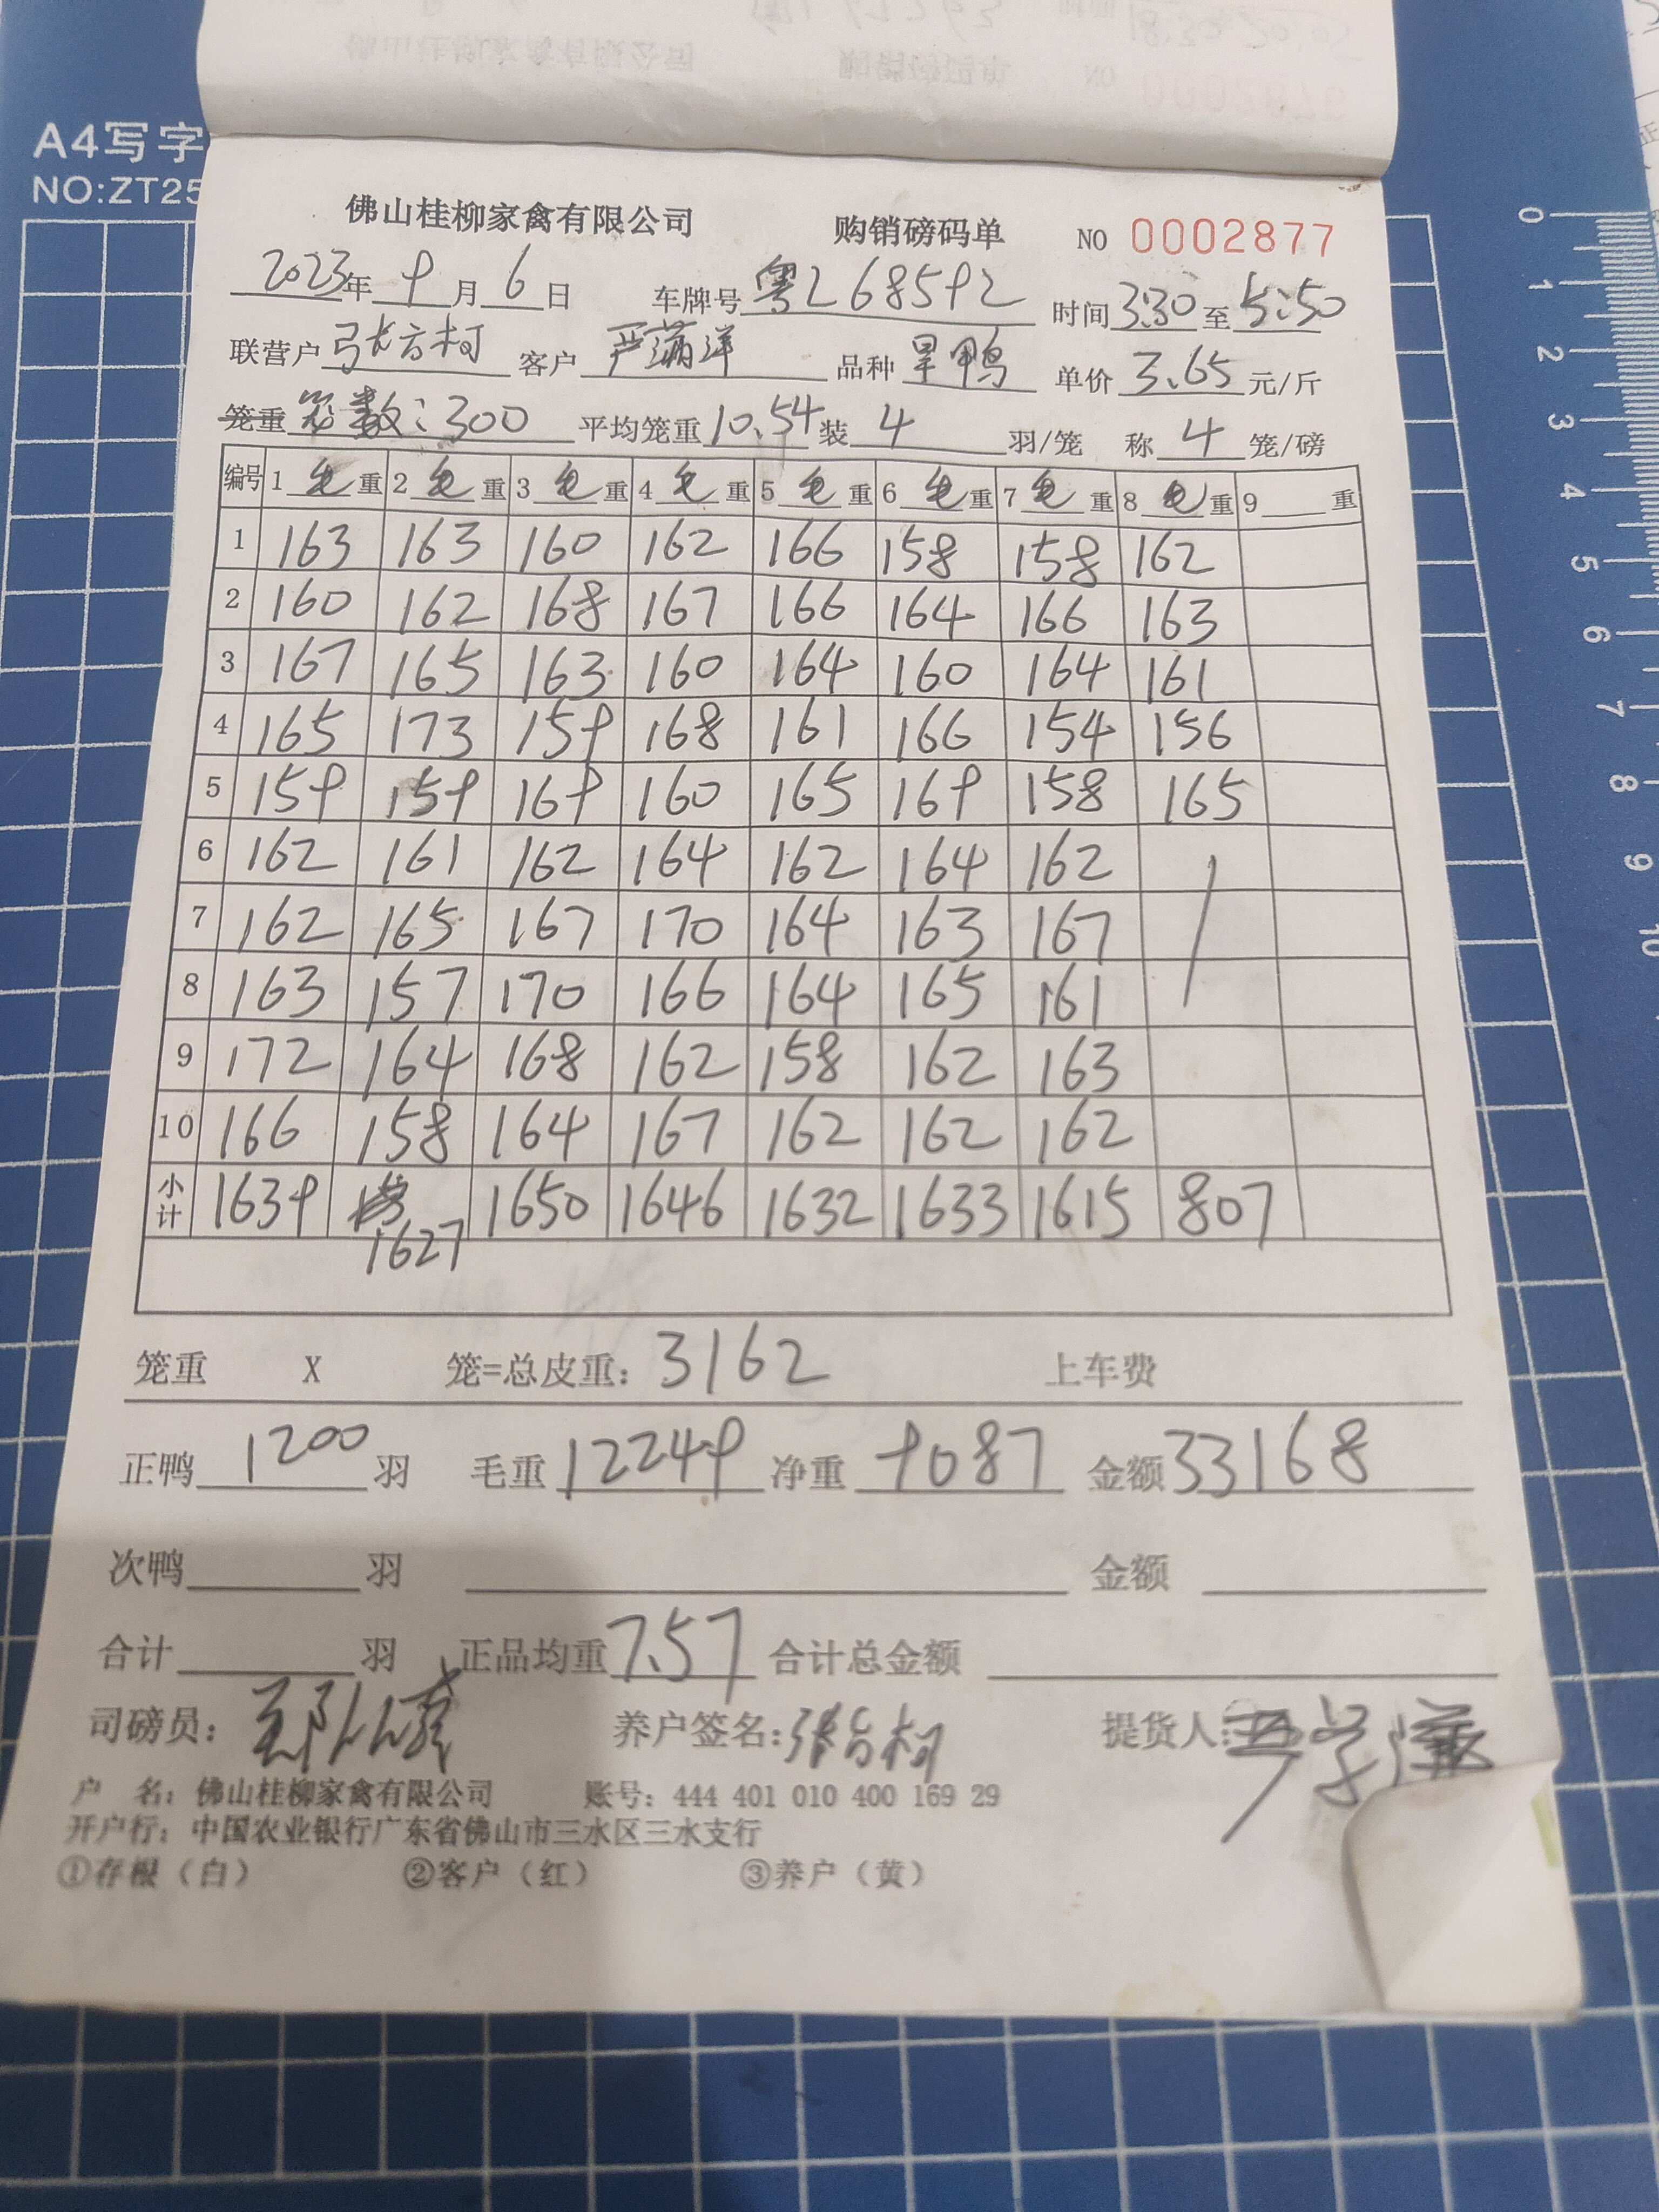 A4写字
NO:ZT25
佛山桂柳家禽有限公司 购销磅码单 NO 0002877
2023年9月6日 车牌号粤L68592 时间3:30至5:50
联营户张容柯 客户严满洋 品种旱鸭 单价3.65元/斤
笼重 笼数:300 平均笼重10.54装4羽/笼 称4笼/磅
编号 1毛重 2毛重 3毛重 4毛重 5毛重 6毛重 7毛重 8毛重 9重
1 163 163 160 162 166 158 158 162
2 160 162 168 167 166 164 166 163
3 167 165 163 160 164 160 164 161
4 165 173 159 168 161 166 154 156
5 159 159 169 160 165 169 158 165
6 162 161 162 164 162 164 162
7 162 165 167 170 164 163 167
8 163 157 170 166 164 165 161
9 172 164 168 162 158 162 163
10 166 158 164 167 162 162 162
小计 1639 1627 1650 1646 1632 1633 1615 807
笼重 X 笼=总皮重:3162 上车费
正鸭1200羽 毛重12249 净重9087 金额33168
次鸭 羽 金额
合计 羽 正品均重7.57 合计总金额
司磅员: 养户签名: 提货人:
户 名:佛山桂柳家禽有限公司 账号:444 401 010 400 169 29
开户行:中国农业银行广东省佛山市三水区三水支行
①存根(白) ②客户(红) ③养户(黄)
0
1
2
3
4
5
6
7
8
9
10